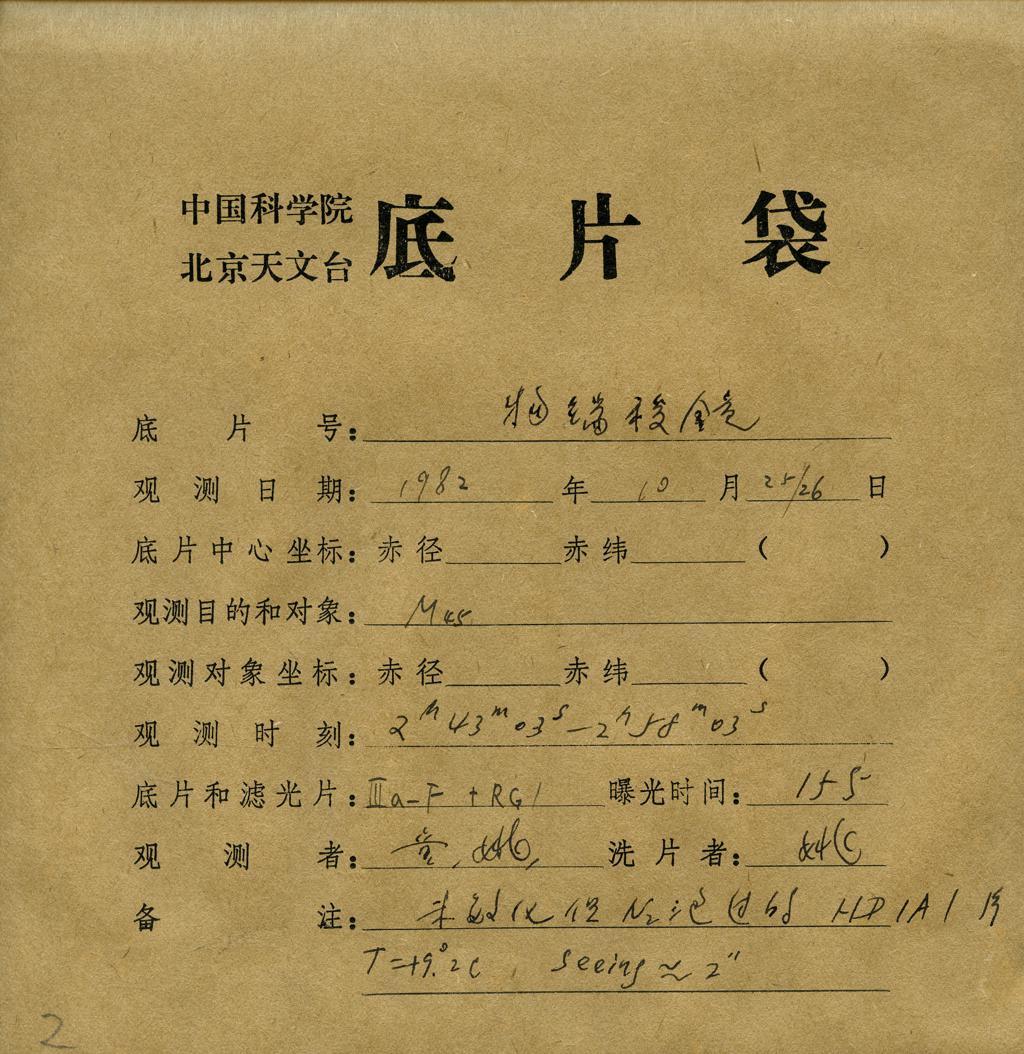 中国科学院
北京天文台
底片袋
底片号：物端棱镜
观测日期：1982年10月25/26日
底片中心坐标：赤径 赤纬 （ ）
观测目的和对象：M45
观测对象坐标：赤径 赤纬 （ ）
观测时刻：2h43m03s—2h58m03s
底片和滤光片：IIIa-F +RG1 曝光时间：
观测者： 洗片者：姚
备注：未敏化但N2泡过的
T=+9.°2C seeing≈2"
2